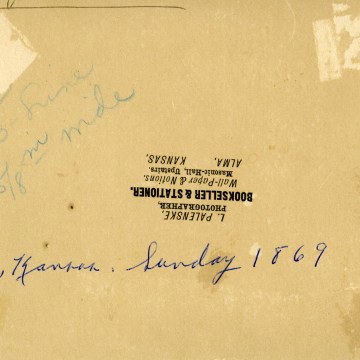 Line
5/8 m wide
L. PALENSKE,
PHOTOGRAPHER,
BOOKSELLER & STATIONER,
Wall-Paper & Notions.
Masonic-Hall, Upstairs.
ALMA, KANSAS,
, Kansas. Sunday 1869